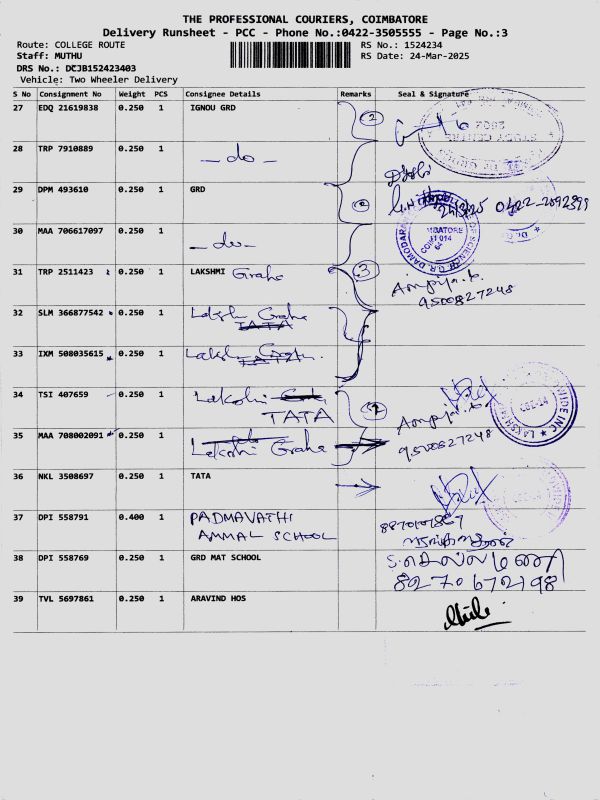 THE PROFESSIONAL COURIERS, COIMBATORE
Delivery Runsheet - PCC - Phone No.:0422-3505555 - Page No.:3
Route: COLLEGE ROUTE RS No.: 1524234
Staff: MUTHU RS Date: 24-Mar-2025
DRS No.: DCJB152423403
Vehicle: Two Wheeler Delivery
S No Consignment No Weight PCS Consignee Details Remarks Seal & Signature
27 EDQ 21619838 0.250 1 IGNOU GRD 2
28 TRP 7910889 0.250 1 — do —
29 DPM 493610 0.250 1 GRD 0422-2092899
30 MAA 706617097 0.250 1 — do —
31 TRP 2511423 0.250 1 LAKSHMI Graha 3
9500827248
32 SLM 366877542 0.250 1 Lakshi Graha
TATA
33 IXM 508035615 0.250 1 Lakshi
TATA
34 TSI 407659 0.250 1 Lakshi
TATA
35 MAA 708002091 0.250 1 Lakshi Graha 9500827248
36 NKL 3508697 0.250 1 TATA
37 DPI 558791 0.400 1 PADMAVATHI
AMMAL SCHOOL
38 DPI 558769 0.250 1 GRD MAT SCHOOL S. செல்லமணி
8270672198
39 TVL 5697861 0.250 1 ARAVIND HOS